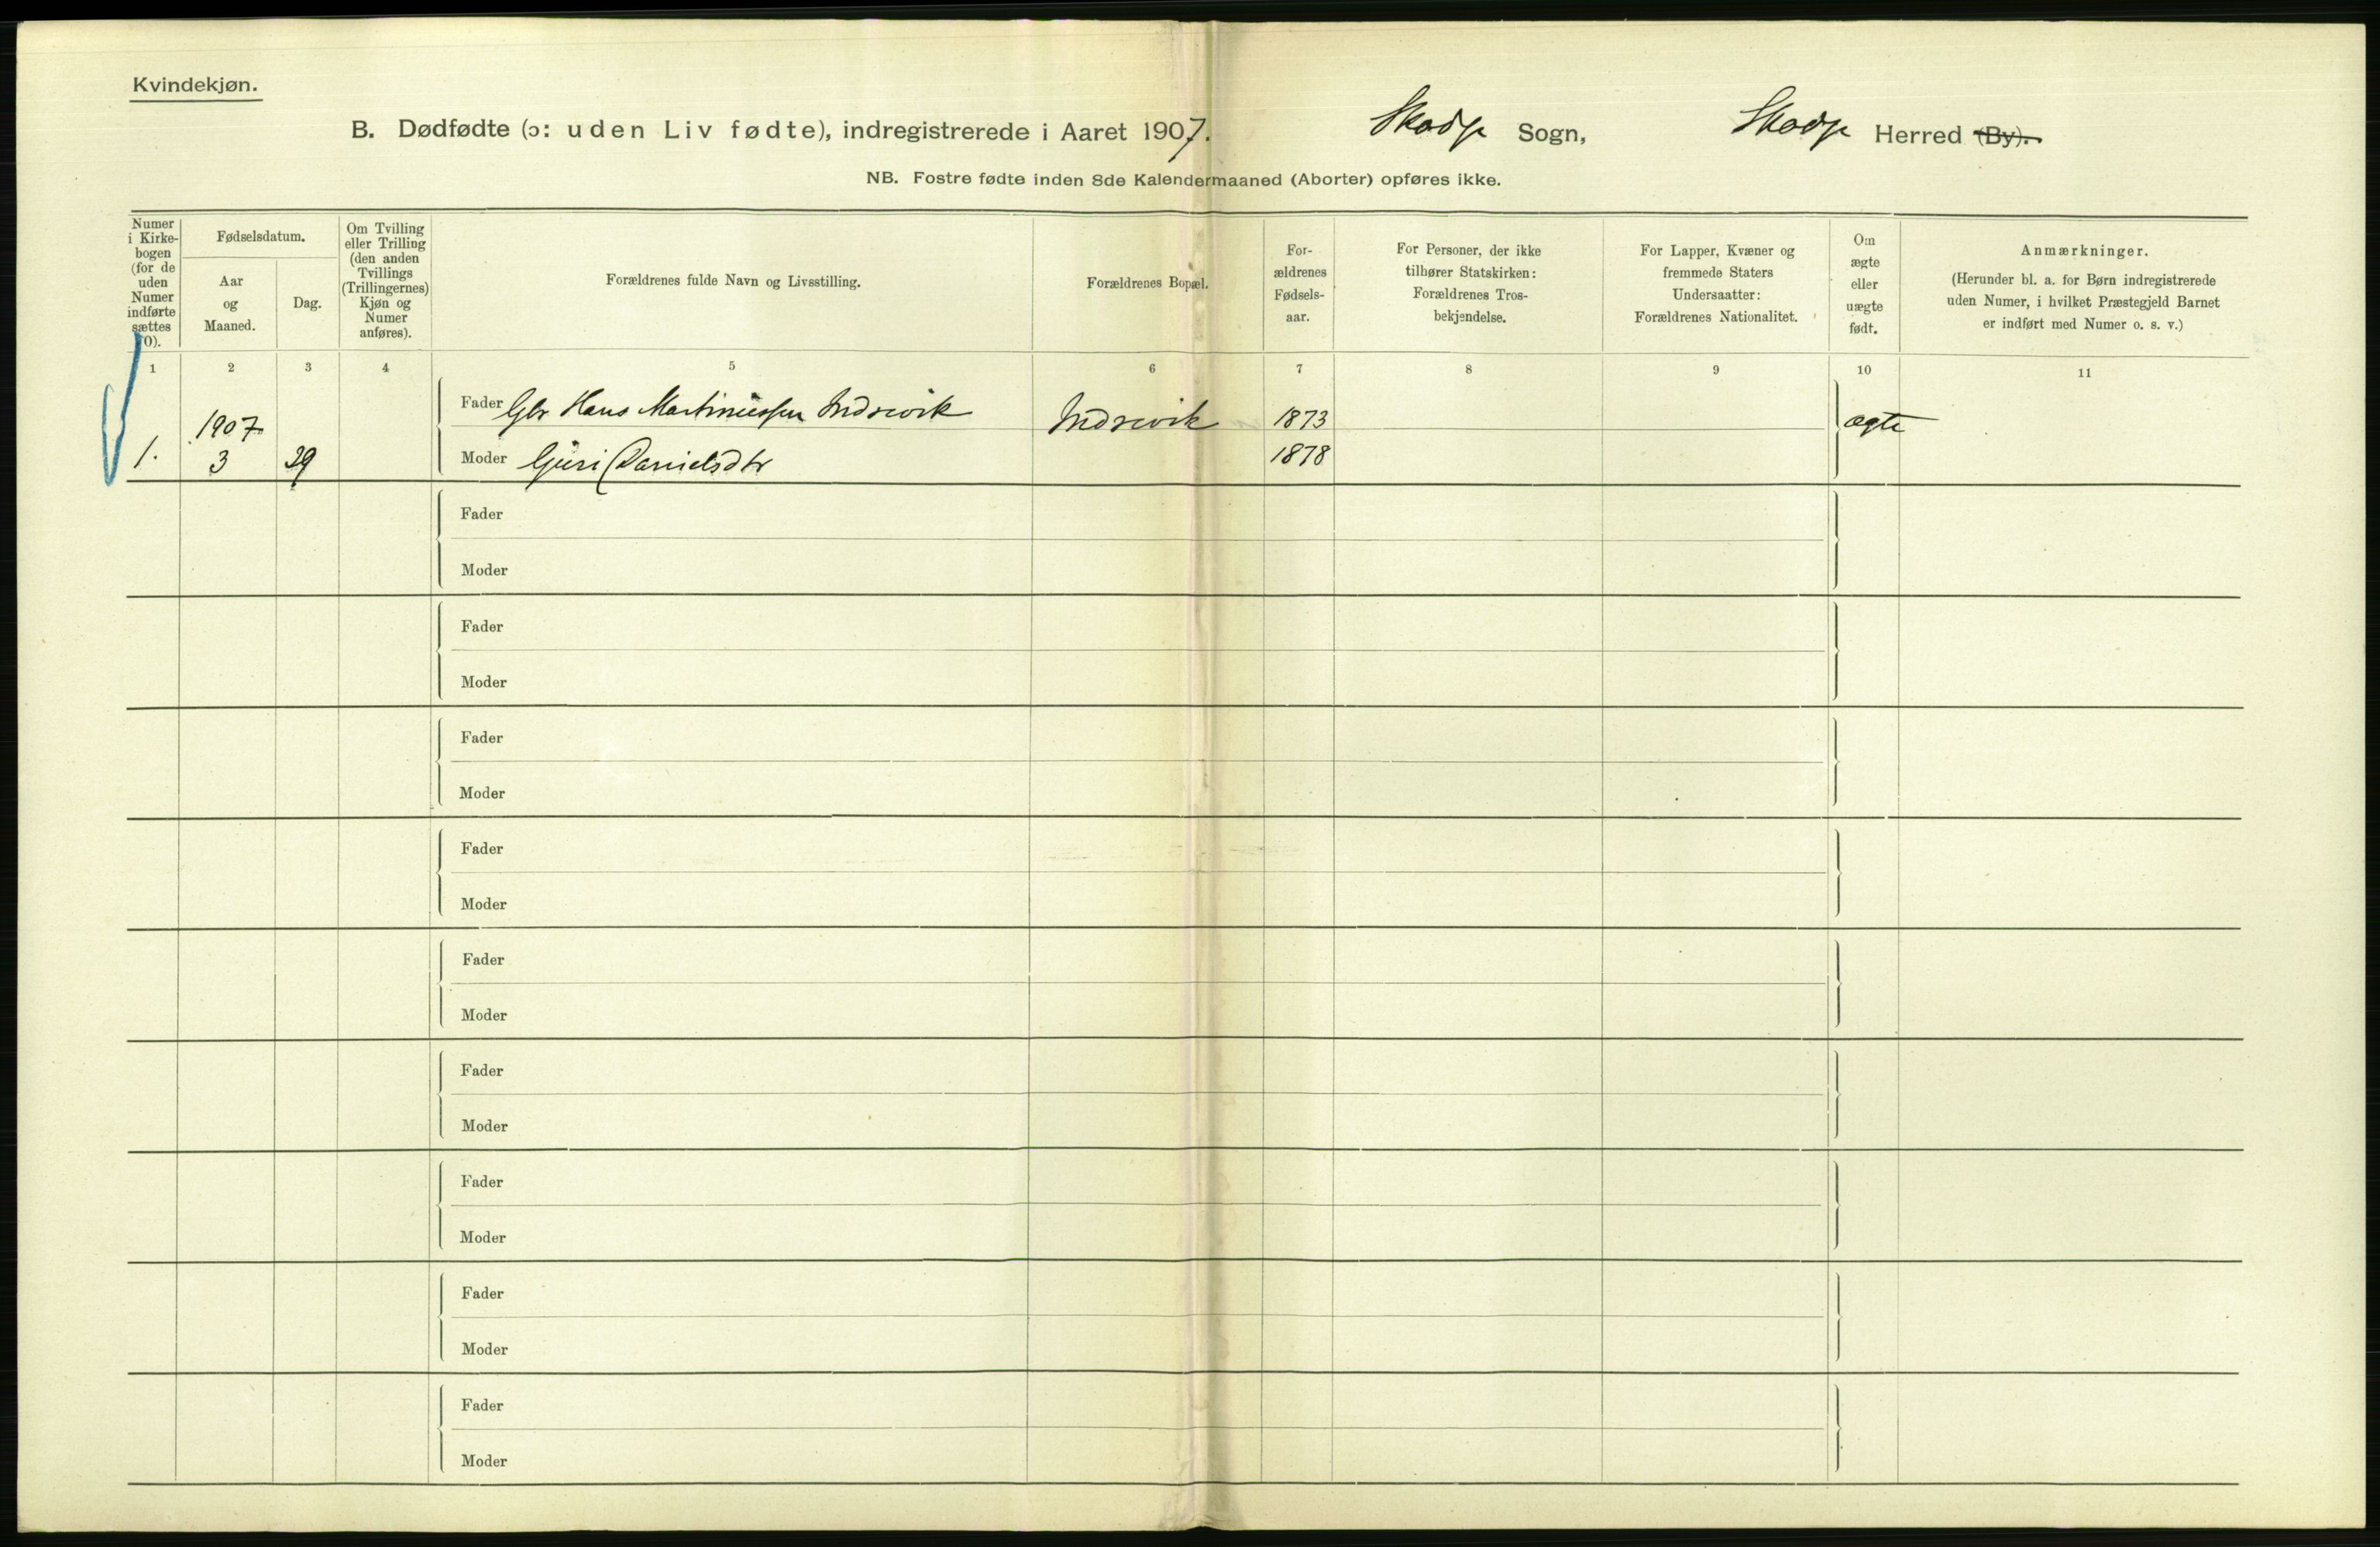 Kvindekjøn.
B. Dødfødte (ɔ: uden Liv fødte), indregistrerede i Aaret 1907. Skodje Sogn, Skodje Herred (By).
NB. Fostre fødte inden 8de Kalendermaaned (Aborter) opføres ikke.
Numer
i Kirke-
bogen
(for de
uden
Numer
indførte
sættes
0).
Fødselsdatum.
Aar
og
Maaned.
Dag.
Om Tvilling
eller Trilling
(den anden
Tvillings
(Trillingernes)
Kjøn og
Numer
anføres).
Forældrenes fulde Navn og Livsstilling.
Forældrenes Bopæl.
For-
ældrenes
Fødsels-
aar.
For Personer, der ikke
tilhører Statskirken:
Forældrenes Tros-
bekjendelse.
For Lapper, Kvæner og
fremmede Staters
Undersaatter:
Forældrenes Nationalitet.
Om
ægte
eller
uægte
født.
Anmærkninger.
(Herunder bl. a. for Børn indregistrerede
uden Numer, i hvilket Præstegjeld Barnet
er indført med Numer o. s. v.)
1 2 3 4 5 6 7 8 9 10 11
1907 Fader Gbr Hans Martinussen Indrevik Indrevik 1873 ægte
1. 3 29 Moder Guri Danielsdtr 1878
Fader
Moder
Fader
Moder
Fader
Moder
Fader
Moder
Fader
Moder
Fader
Moder
Fader
Moder
Fader
Moder
Fader
Moder